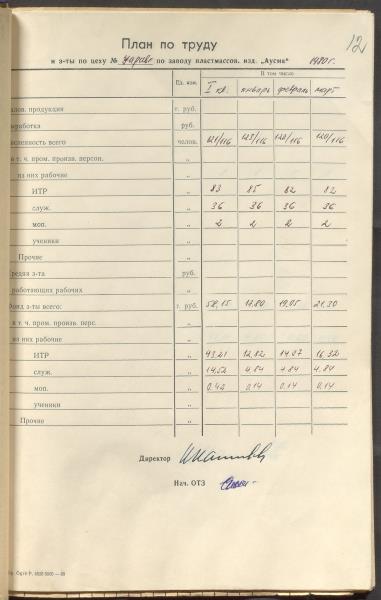 12
План по труду
и з-ты по цеху № по заводу пластмассов. изд. „Аусма" 1980 г.
Ед. изм. В том числе
I кв. январь февраль март
продукция т. руб.
руб.
всего челов. 121/116 123/116 122/116 120/116
т. ч. пром. произв. персон. „
из них рабочие „
ИТР „ 83 85 82 82
служ. „ 36 36 36 36
моп. „ 2 2 2 2
ученики „
Прочие „
з-та руб.
работающих рабочих „
з-ты всего: т. руб. 58,15 17,80 19,05 21,30
т. ч. пром. произв. перс. „
из них рабочие „
ИТР „ 43,21 12,82 14,07 16,32
служ. „ 14,52 4,84 4,84 4,84
моп. „ 0,42 0,14 0,14 0,14
ученики „
Прочие „
Директор
Нач. ОТЗ